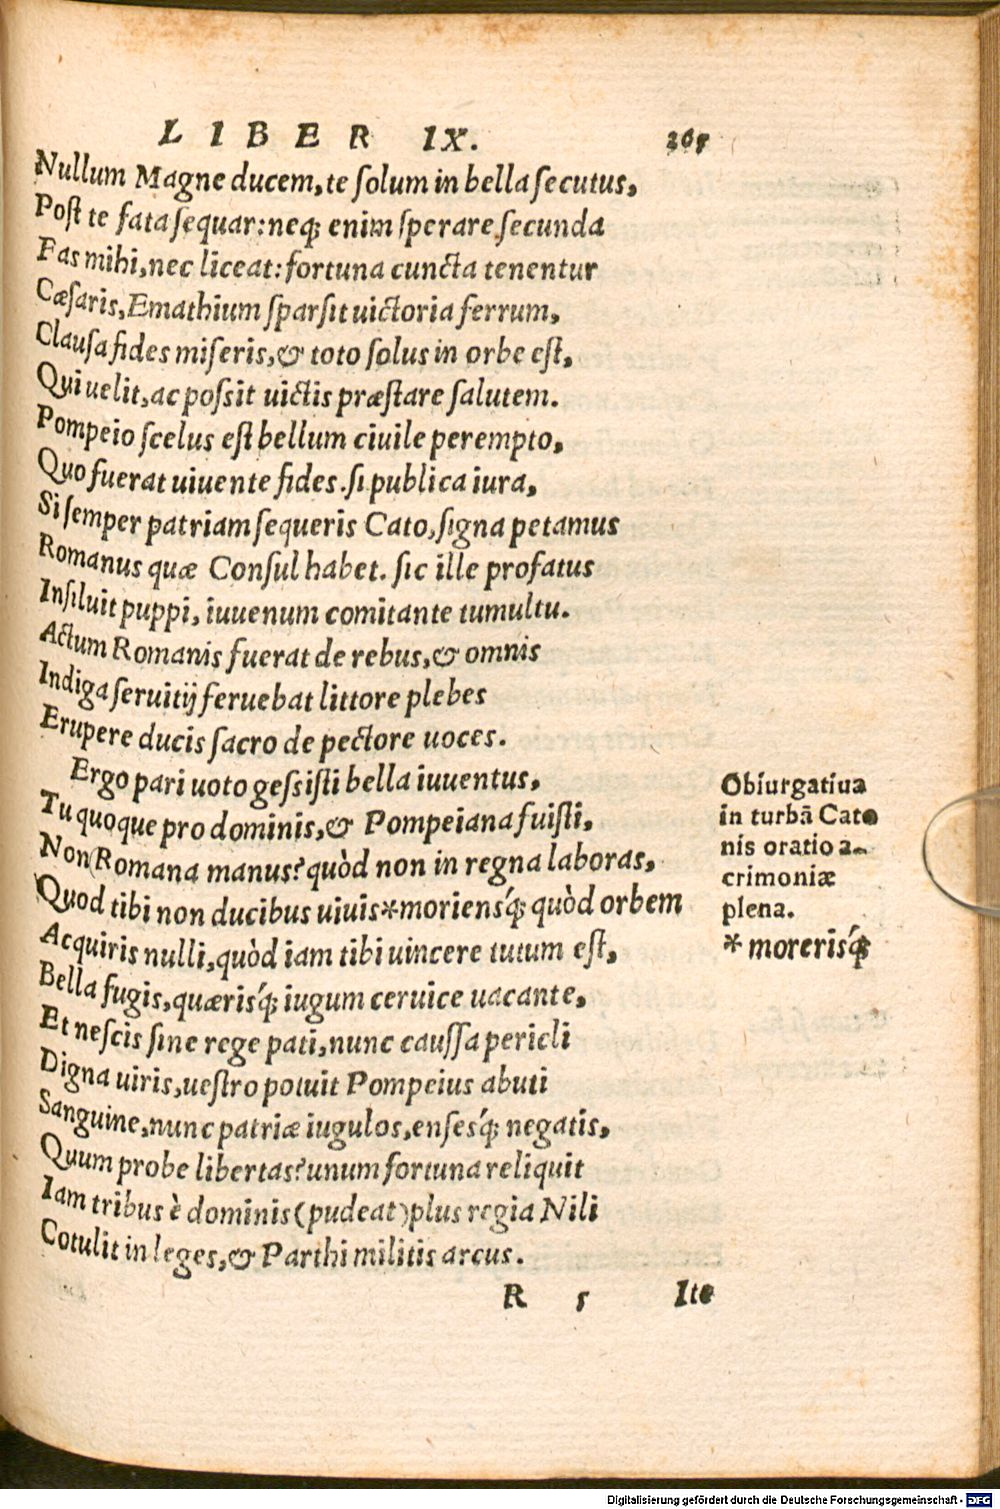 LIBER IX. 265
Nullum Magne ducem, te ſolum in bella ſecutus,
Poſt te fata ſequar: neq; enim ſperare ſecunda
Fas mihi, nec liceat: fortuna cuncta tenentur
Cæſaris, Emathium ſparſit uictoria ferrum,
Clauſa fides miſeris, & toto ſolus in orbe eſt,
Qui uelit, ac poſsit uictis præſtare ſalutem.
Pompeio ſcelus eſt bellum ciuile perempto,
Quo fuerat uiuente fides. ſi publica iura,
Si ſemper patriam ſequeris Cato, ſigna petamus
Romanus quæ Conſul habet. ſic ille profatus
Inſiluit puppi, iuuenum comitante tumultu.
Actum Romanis fuerat de rebus, & omnis
Indiga ſeruitij feruebat littore plebes
Erupere ducis ſacro de pectore uoces.
Ergo pari uoto geſsiſti bella iuuentus,
Tu quoque pro dominis, & Pompeiana fuiſti,
Non Romana manus? quòd non in regna laboras,
Quod tibi non ducibus uiuis*moriensq́; quòd orbem
Acquiris nulli, quòd iam tibi uincere tutum eſt,
Bella fugis, quærisq́; iugum ceruice uacante,
Et neſcis ſine rege pati, nunc cauſſa pericli
Digna uiris, ueſtro potuit Pompeius abuti
Sanguine, nunc patriæ iugulos, enſesq́; negatis,
Quum probe libertas? unum fortuna reliquit
Iam tribus è dominis (pudeat) plus regia Nili
Cotulit in leges, & Parthi militis arcus.
R 5 Ite
Obiurgatiua
in turbā Cato
nis oratio a-
crimoniæ
plena.
* morerisq́;
Digitalisierung gefördert durch die Deutsche Forschungsgemeinschaft - DFG